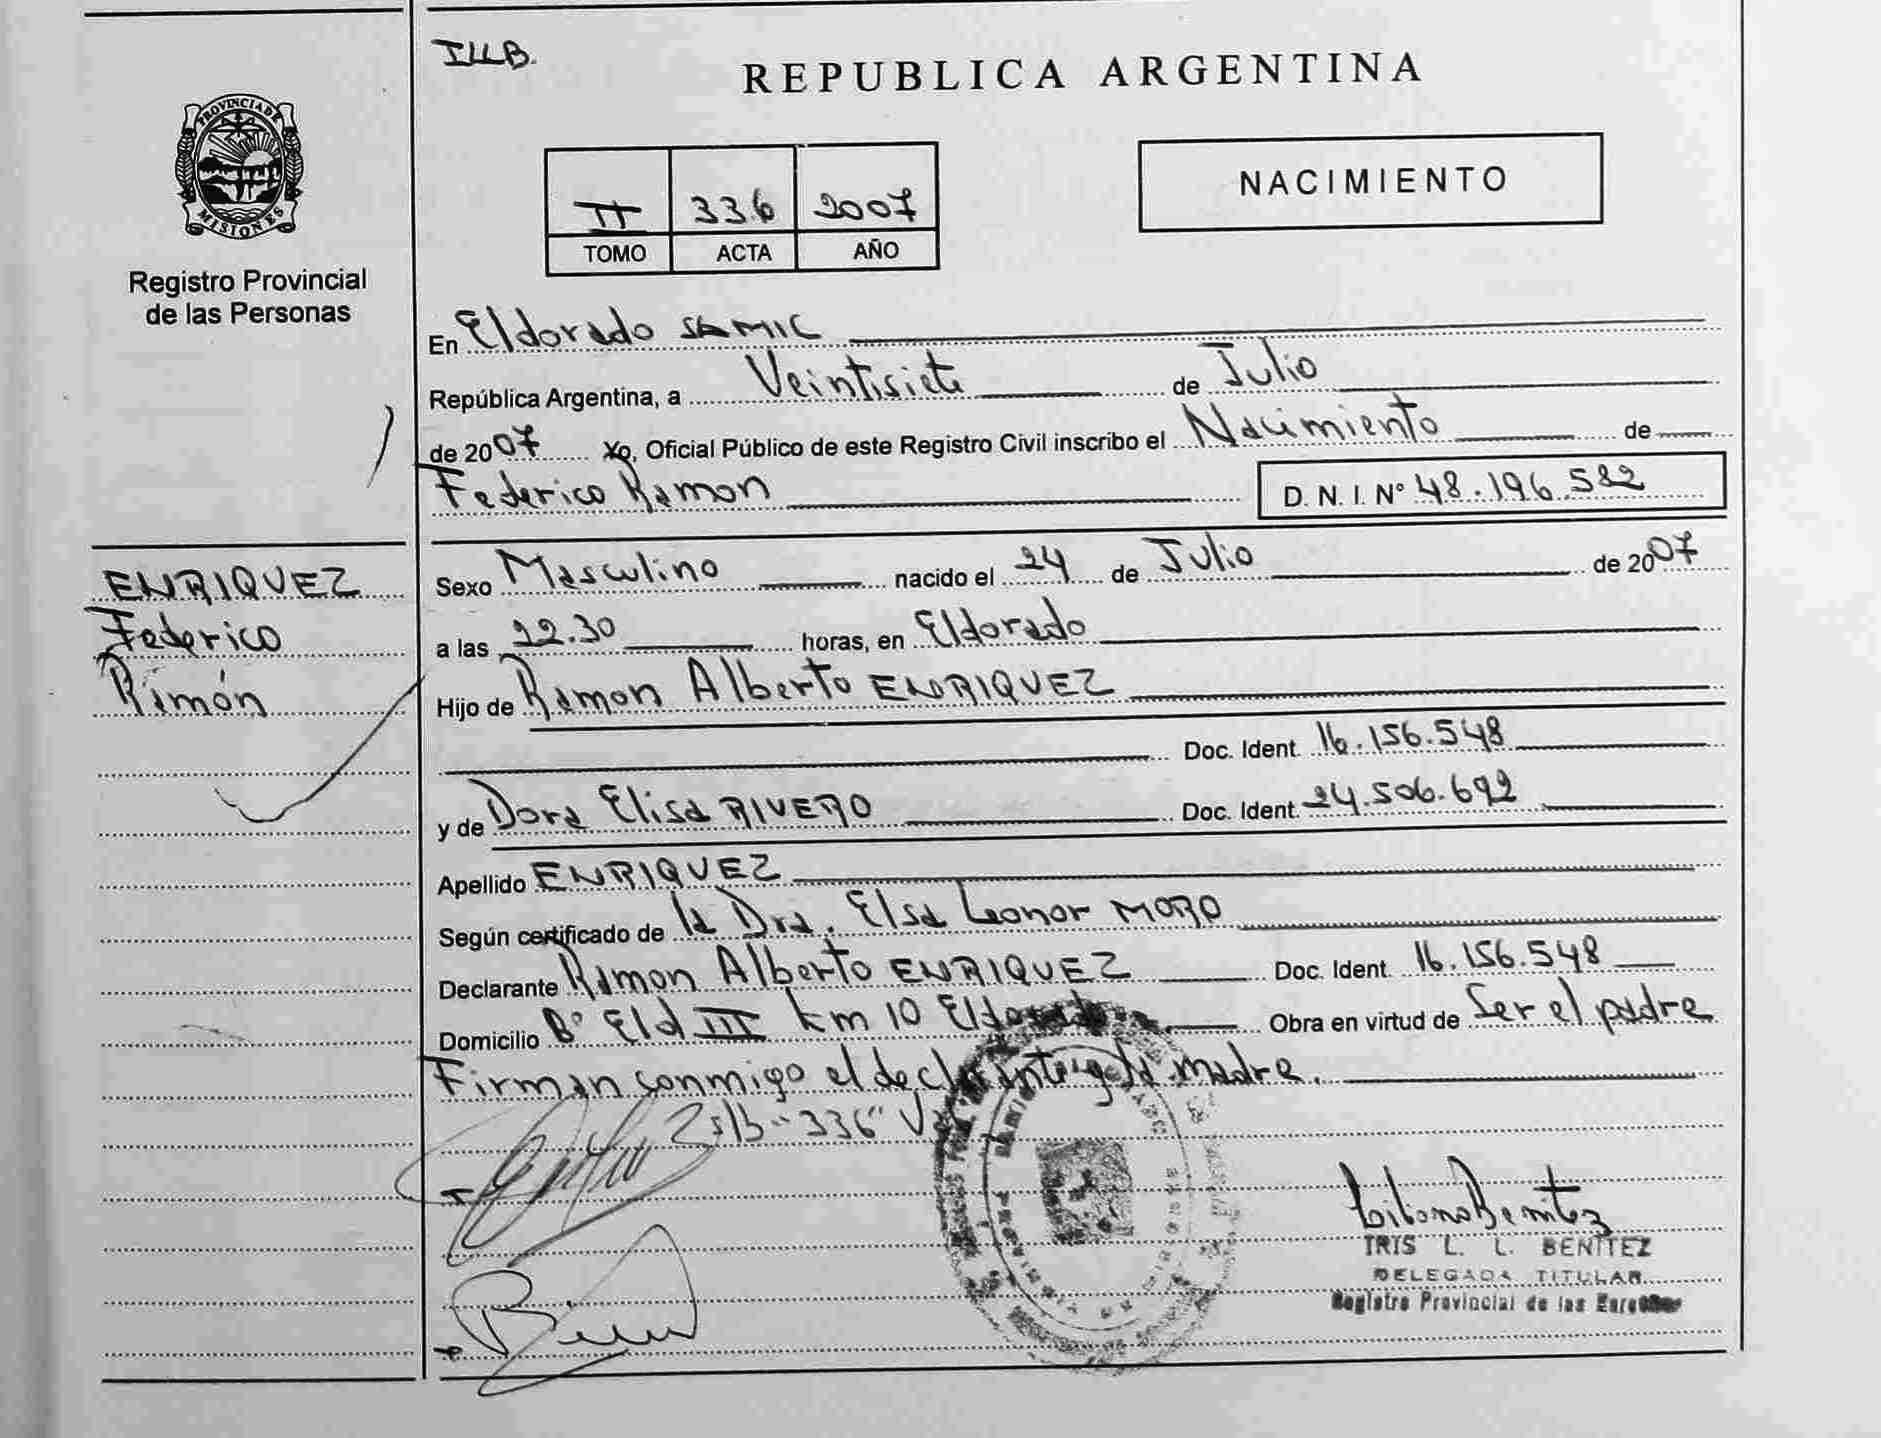 ILLB.
REPUBLICA ARGENTINA
PROVINCIA DE MISIONES
Registro Provincial
de las Personas
II 336 2007
TOMO ACTA AÑO
NACIMIENTO
En Eldorado SAMIC
República Argentina, a Veintisiete de Julio
de 2007 Yo, Oficial Público de este Registro Civil inscribo el Nacimiento de
Federico Ramon D. N. I. Nº 48.196.582
ENRIQUEZ
Federico
Ramón
Sexo Masculino nacido el 24 de Julio de 2007
a las 22.30 horas, en Eldorado
Hijo de Ramon Alberto ENRIQUEZ
Doc. Ident. 16.156.548
y de Dora Elisa RIVERO Doc. Ident. 24.506.692
Apellido ENRIQUEZ
Según certificado de la Dra. Elsa Leonor MORO
Declarante Ramon Alberto ENRIQUEZ Doc. Ident. 16.156.548
Domicilio Bº Eld III km 10 Eldorado Obra en virtud de Ser el padre
Firman conmigo el declarante y la madre.
336
IRIS L. L. BENITEZ
DELEGADA TITULAR
Registro Provincial de las